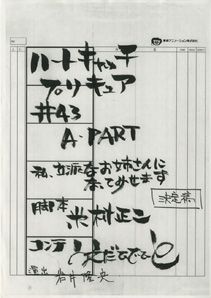 東映アニメーション株式会社
ハートキャッチ
プリキュア
#43
A・PART
私、立派なお姉さんに
なってみせます
決定稿
脚本 米村正二
コンテ
演出 岩井隆央